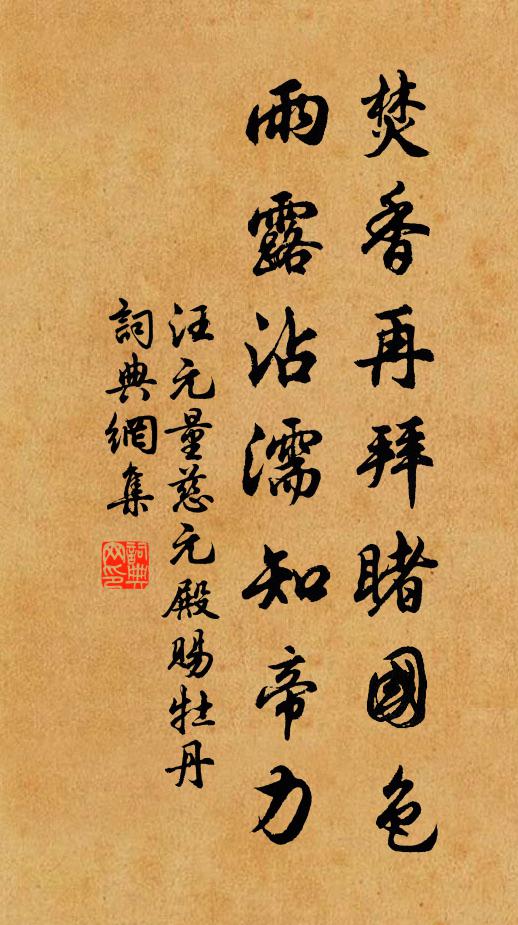 焚香再拜睹國色
雨露沾濡知帝力
汪元量慈元殿賜牡丹
詞典網集
詞典
网印